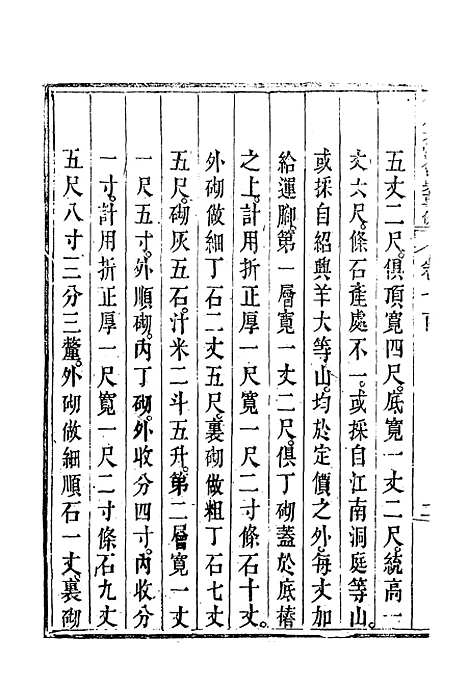 五丈二尺。俱頂寬四尺。底寬一丈二尺。統高一
丈六尺。條石產處不一。或採自江南洞庭等山。
或採自紹興羊大等山。均於定價之外。每丈加
給運腳。第一層寬一丈二尺。俱丁砌蓋於底樁
之上。計用折正厚一尺寬一尺二寸條石十丈。
外砌做細丁石二丈五尺。裏砌做粗丁石七丈
五尺。砌灰五石。汁米二斗五升。第二層寬一丈
一尺五寸。外順砌。內丁砌。外收分四寸。內收分
一寸。計用折正厚一尺寬一尺二寸條石九丈
五尺八寸三分三釐。外砌做細順石一丈。裏砌